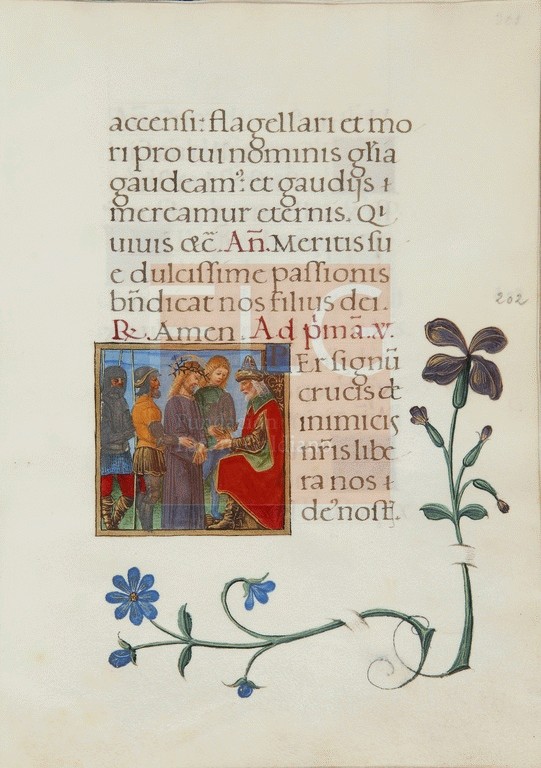 accensi: flagellari et mo
ri pro tui nominis gl̃ia
gaudeam᷒: et gaudijs ⁊
mercamur eternis. Qi
uiuis ⁊c̃. Añ. Meritis su
e dulcissime passionis
bñdicat nos filius dei.
R. Amen. Ad p̃mã. v.
Er signũ
crucis de
inimicis
nr̃is libe
ra nos ⁊
de᷒ nost̃.
202